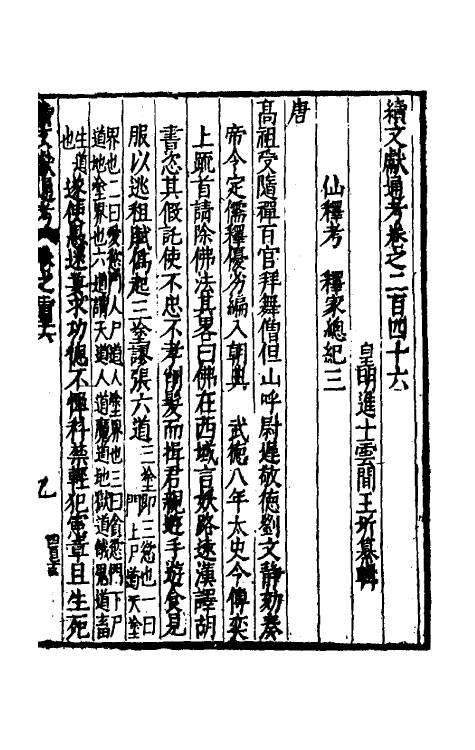 續文獻通考卷之二百四十六
皇明進士雲間王圻纂輯
仙釋考　釋家總紀三
唐
高祖受隋禪百官拜舞僧但山呼尉遲敬德劉文靜劾奏
帝令定儒釋優劣編入朝典　武德八年太史令傅奕
上䟽首請除佛法其畧曰佛在西域言妖路逺漢譯胡
書恣其假託使不忠不孝削髮而揖君親遊手遊食易
服以逃租賦僞起三塗謬張六道三塗即三慾也一曰
門上尸道天塗
界也二曰愛慾門人尸道人塗界也三曰貪慾門下尸
道地塗界也六道謂天道人道魔道地獄道餓鬼道畜
生道
也遂使愚迷妄求功德不憚科禁輕犯憲章且生死
續文獻通考　卷之